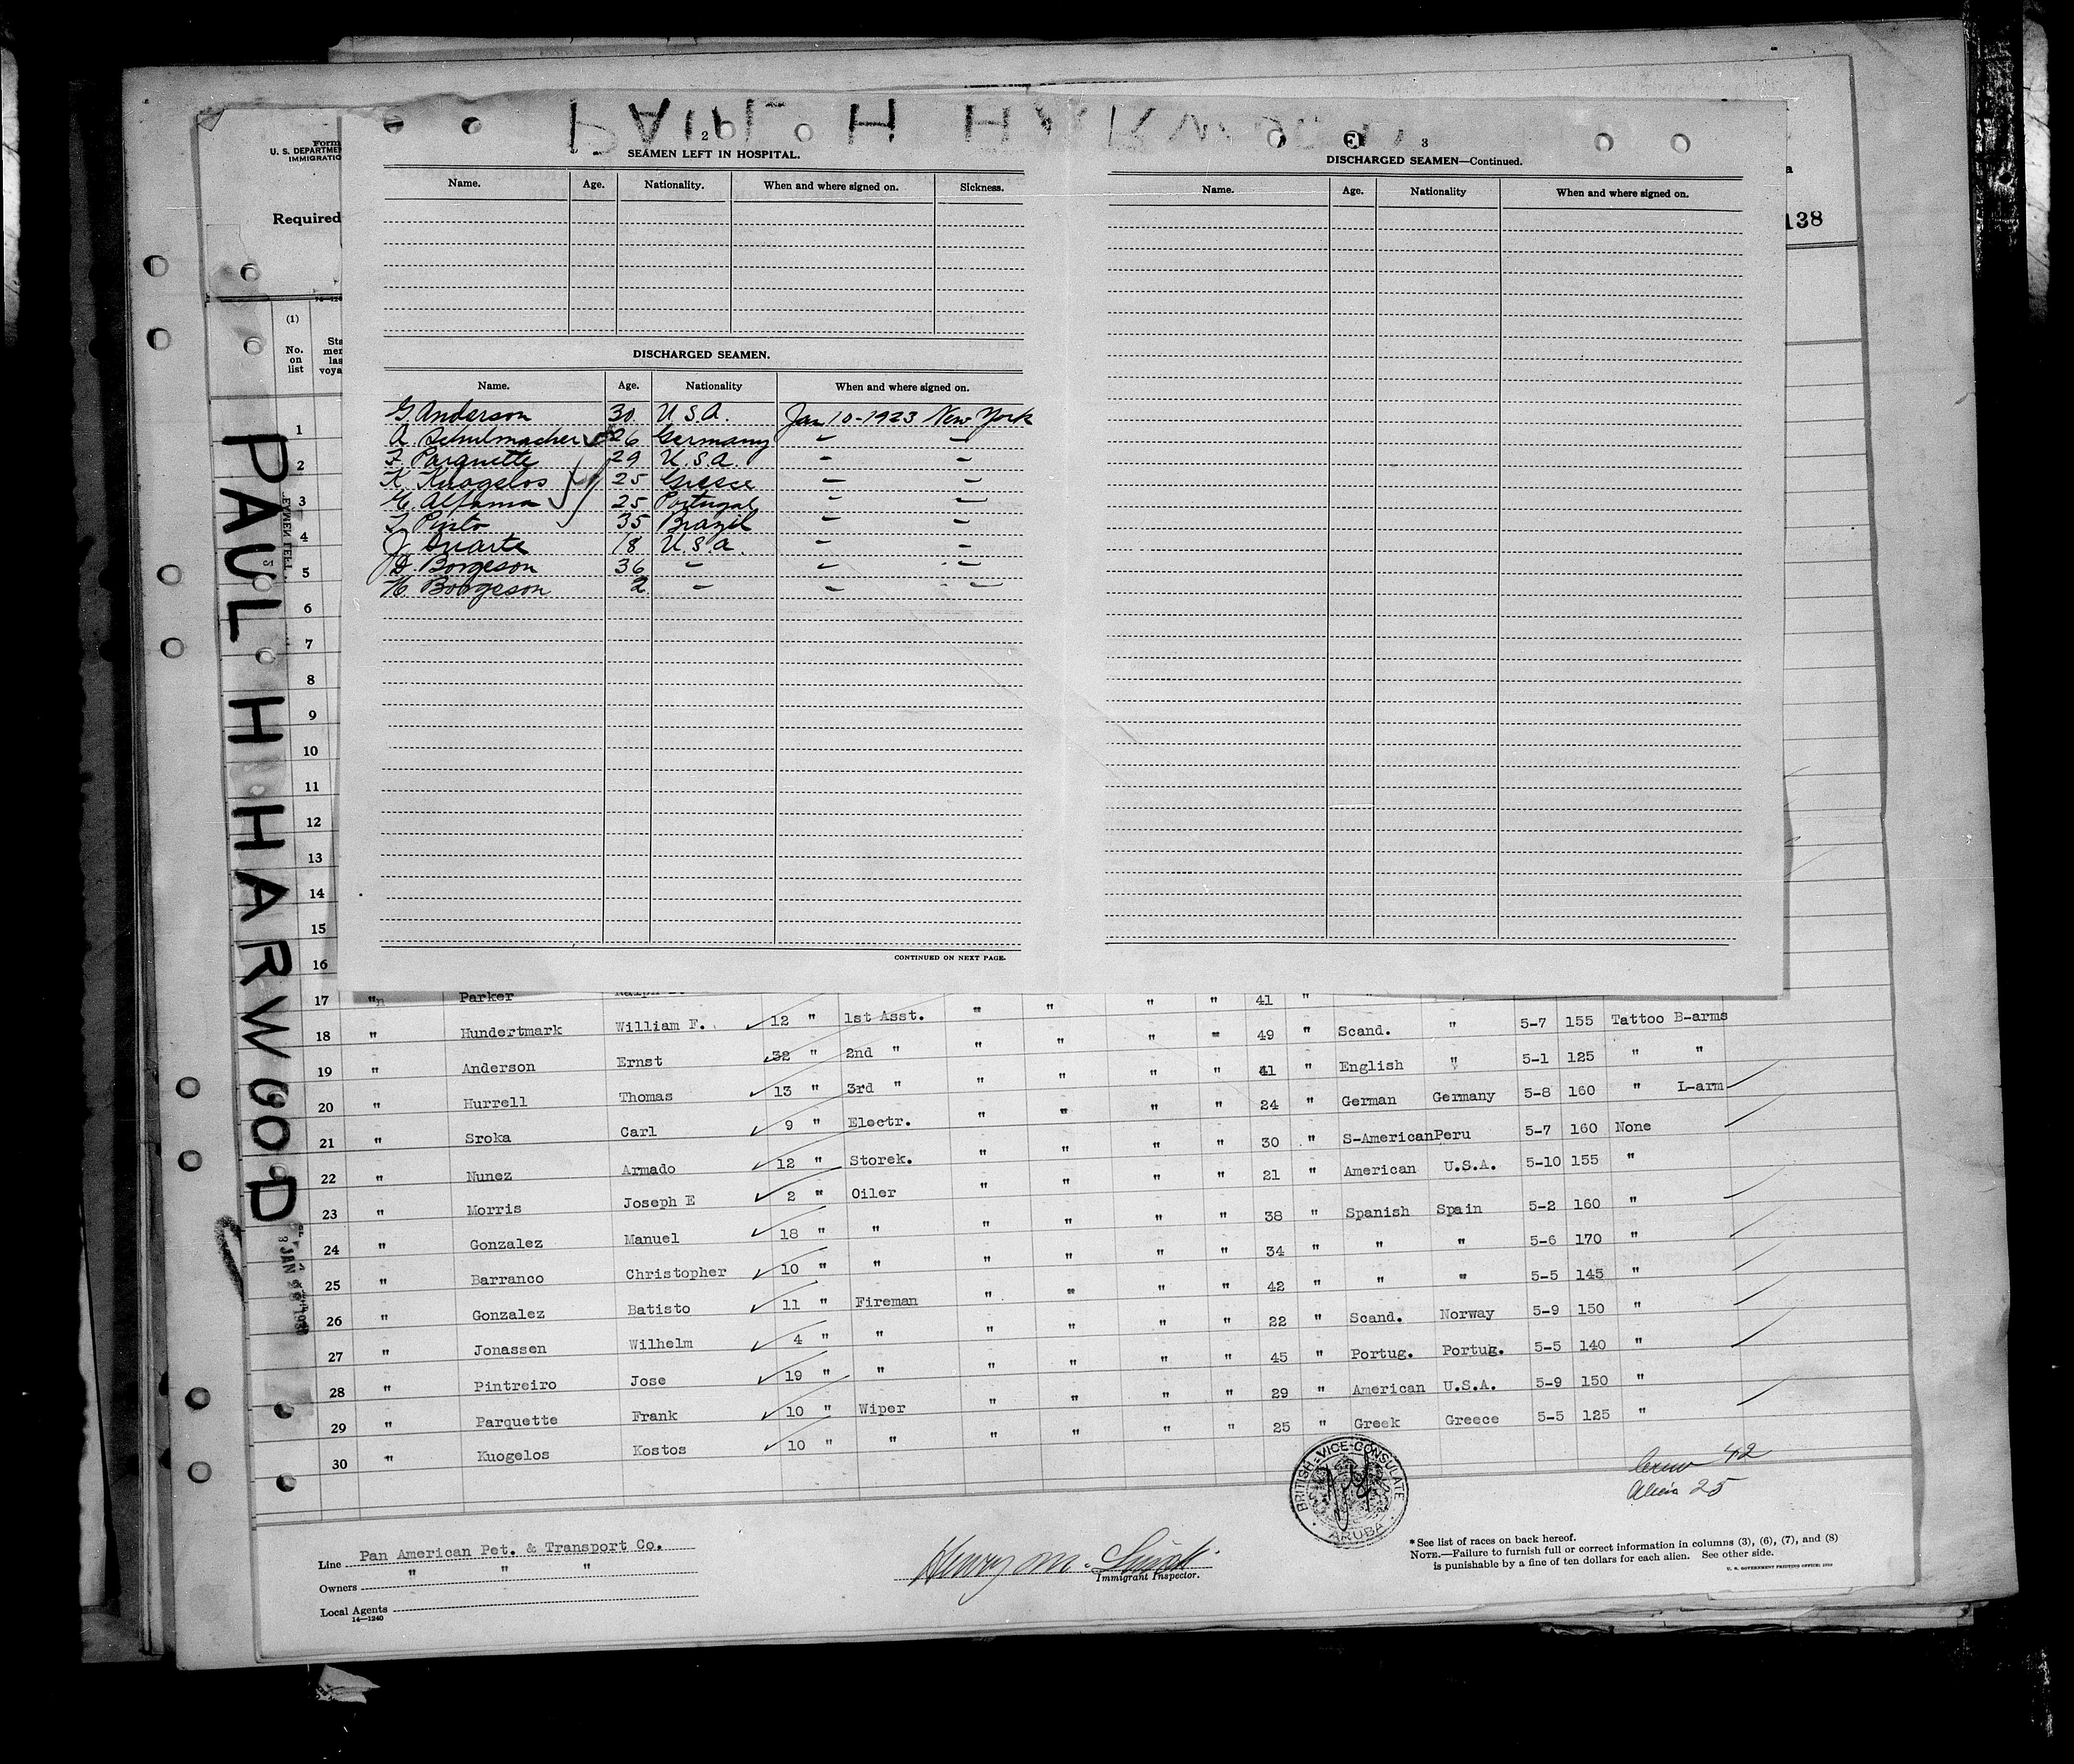 PAUL H HARWOOD
2
SEAMEN LEFT IN HOSPITAL.
Name. Age. Nationality. When and where signed on. Sickness.
DISCHARGED SEAMEN.
Name. Age. Nationality When and where signed on.
G. Anderson 30 U.S.A. Jan 10-1923 New York
A. Schulmacher 26 Germany " "
F. Parquette 29 U.S.A. " "
K. Kuogelos 25 Greece " "
M. Alfama 25 Portugal " "
J. Pinto 35 Brazil " "
J. Duarte 18 U.S.A. " "
D. Borgeson 36 " " "
H. Borgeson 2 " " "
CONTINUED ON NEXT PAGE.
E 3
DISCHARGED SEAMEN—Continued.
Name. Age. Nationality When and where signed on.
Form
U. S. DEPARTMEN
IMMIGRATIO
Required
138
(1)
No. on list
Sta
men
las
voya
1
2
3
4
5
6
7
8
9
10
11
12
13
14
15
16
PAUL H HARWOOD
17 " Parker Ralph 41 "
18 " Hundertmark William F. 12 " 1st Asst. " " " " 49 " Scand. " 5-7 155 Tattoo B-arms
19 " Anderson Ernst 32 " 2nd " " " " " 41 " English " 5-1 125 " "
20 " Hurrell Thomas 13 " 3rd " " " " " 24 " German Germany 5-8 160 " L-arm
21 " Sroka Carl 9 " Electr. " " " " 30 " S-American Peru 5-7 160 None
22 " Nunez Armado 12 " Storek. " " " " 21 " American U.S.A. 5-10 155 "
23 " Morris Joseph E 2 " Oiler " " " " 38 " Spanish Spain 5-2 160 "
24 " Gonzalez Manuel 18 " " " " " " 34 " " " 5-6 170 "
25 " Barranco Christopher 10 " " " " " " 42 " " " 5-5 145 "
26 " Gonzalez Batisto 11 " Fireman " " " " 22 " Scand. Norway 5-9 150 "
27 " Jonassen Wilhelm 4 " " " " " " 45 " Portug. Portug. 5-5 140 "
28 " Pintreiro Jose 19 " " " " " " 29 " American U.S.A. 5-9 150 "
29 " Parquette Frank 10 " Wiper " " " " 25 " Greek Greece 5-5 125 "
30 " Kuogelos Kostos 10 " " " "
Crew 42
Alien 25
BRITISH-VICE-CONSULATE
ARUBA
Line Pan American Pet. & Transport Co.
Owners " " "
Local Agents
14—1240
Henry M.
Immigrant Inspector.
* See list of races on back hereof.
NOTE.—Failure to furnish full or correct information in columns (3), (6), (7), and (8)
is punishable by a fine of ten dollars for each alien. See other side.
U. S. GOVERNMENT PRINTING OFFICE